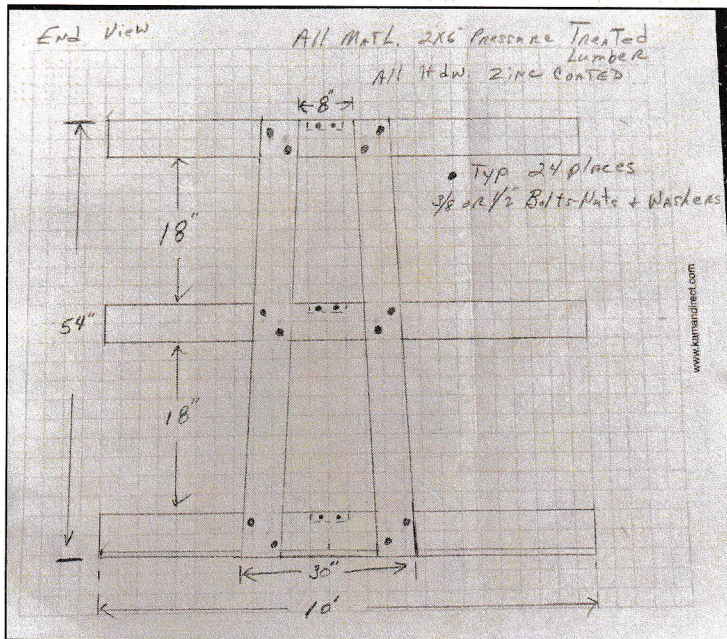 End View
All Mat'L. 2X6" Pressure Treated
Lumber
All Hdw. Zinc Coated
8"
• Typ 24 places
3/8 or 1/2" Bolts-Nuts + Washers
18"
54"
18"
30"
10'
www.kamandirect.com